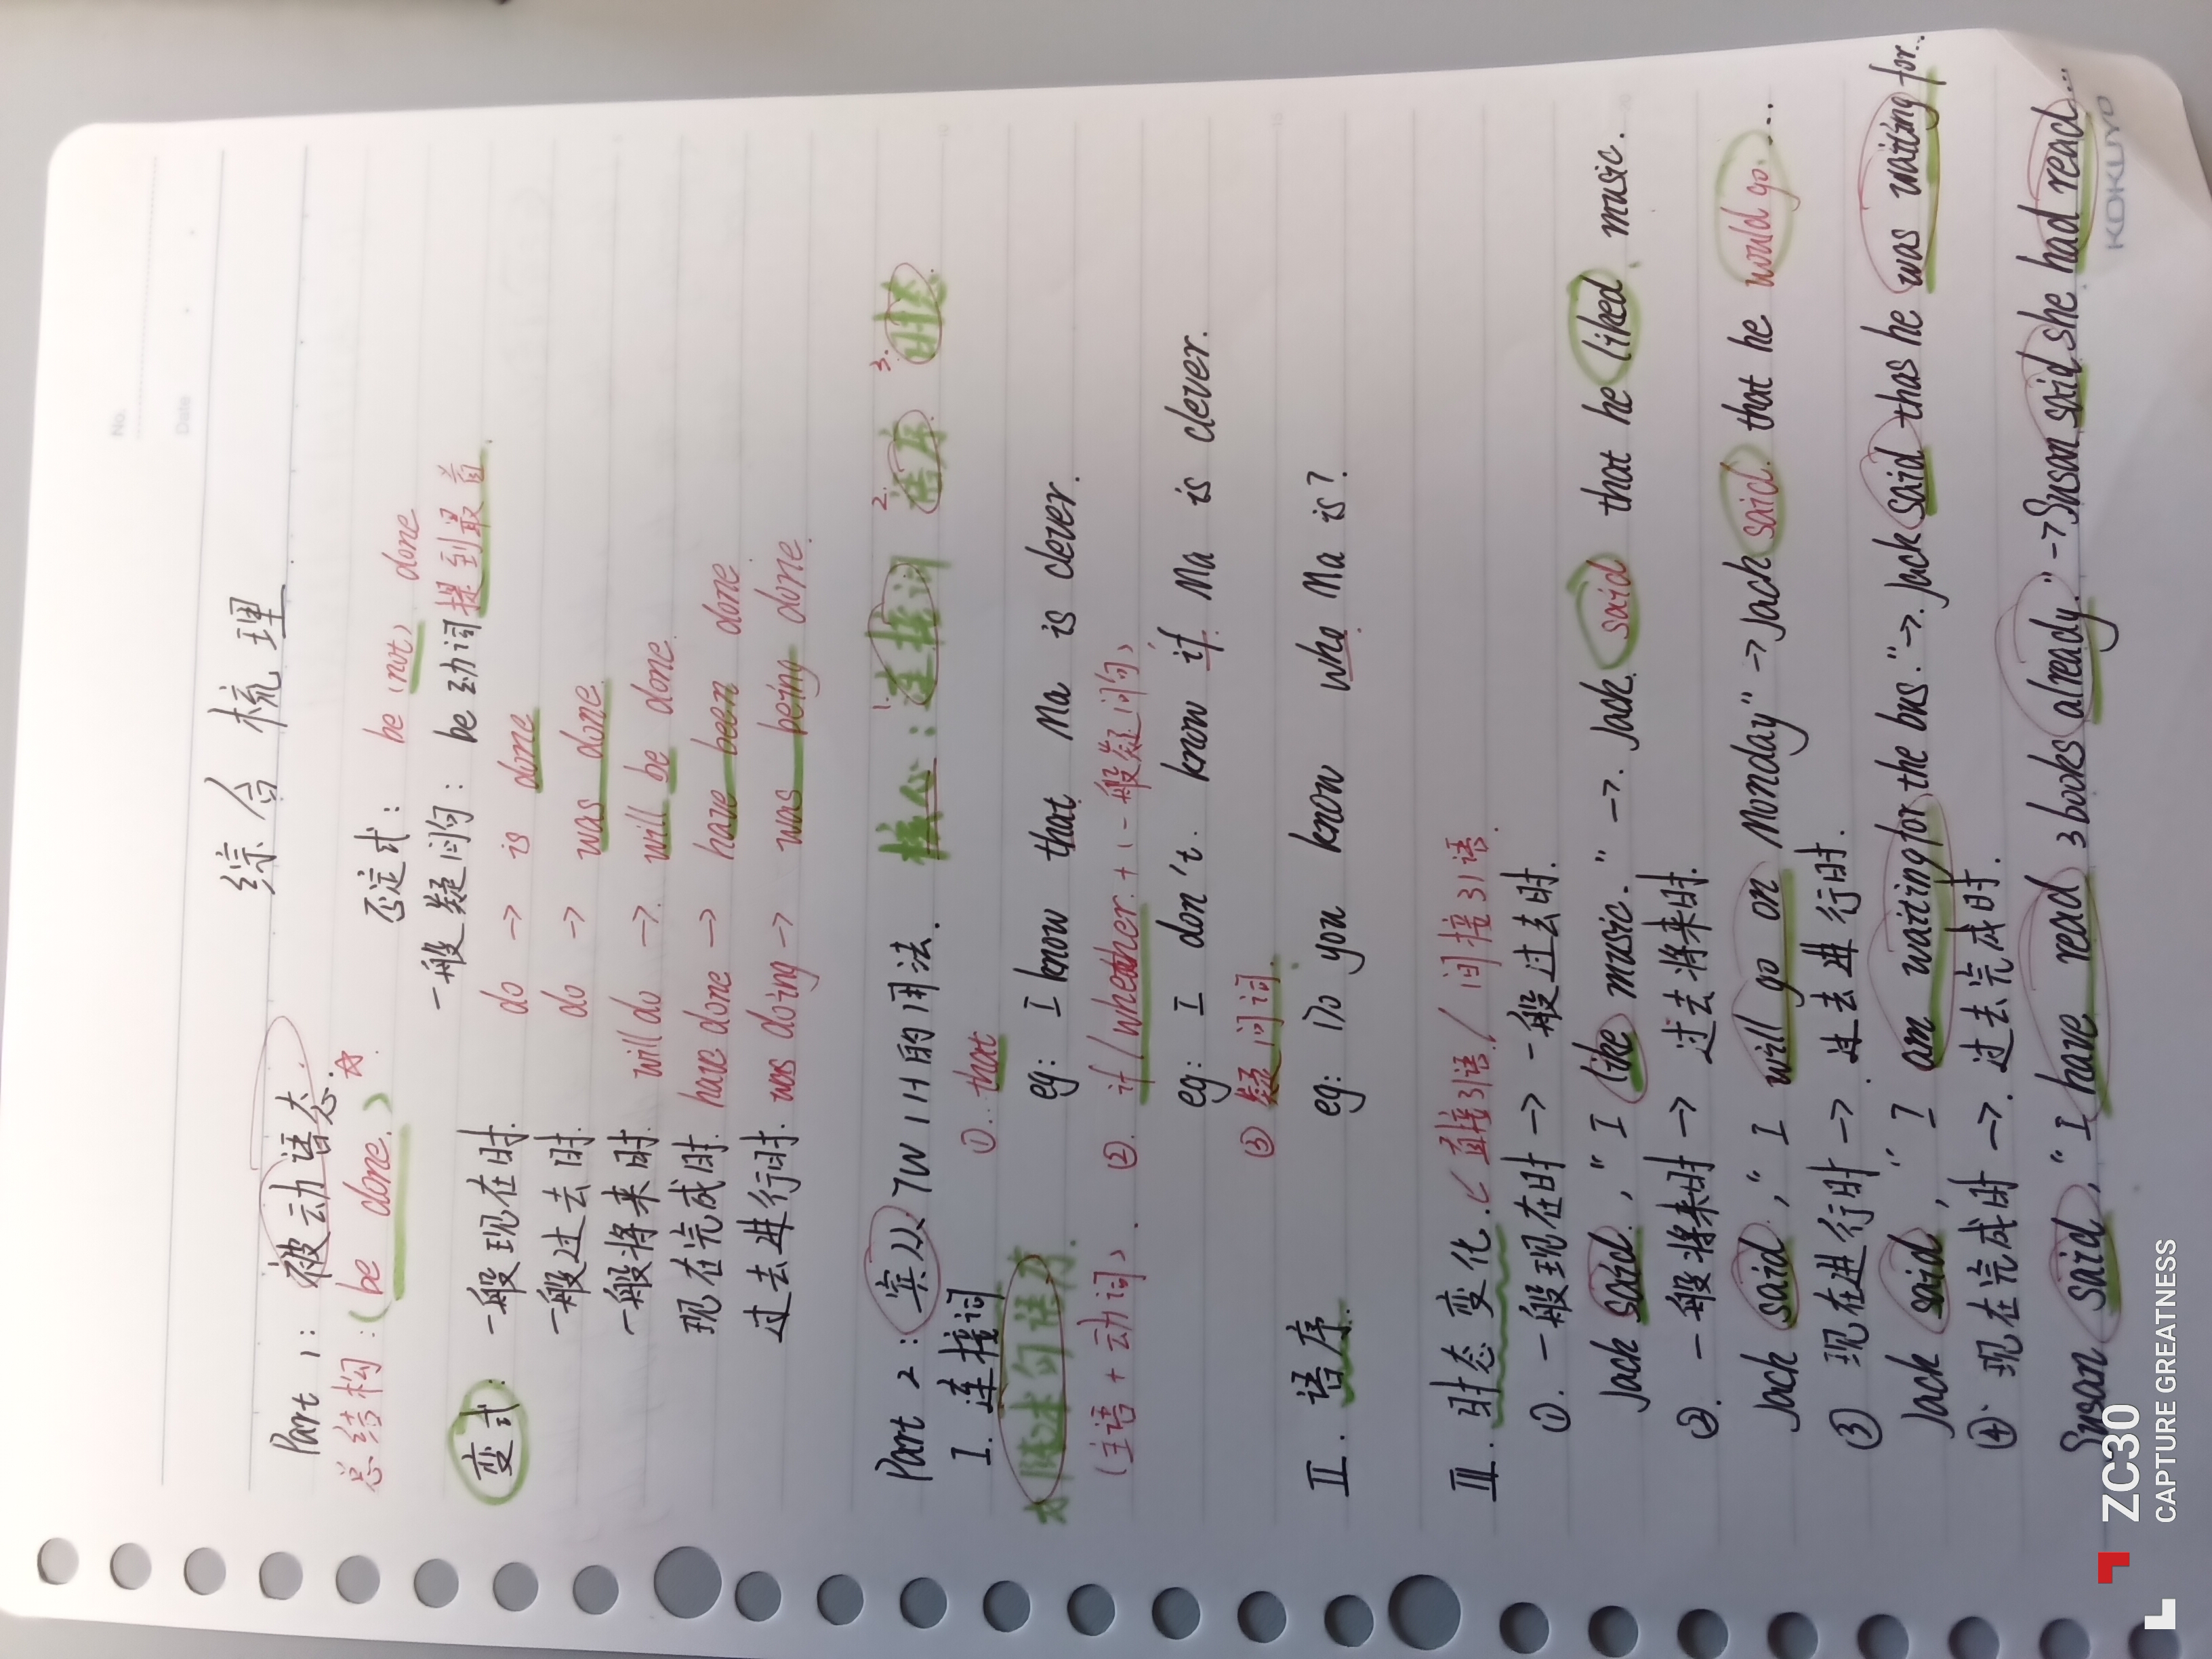 No.
Date
综合梳理
Part 1: 被动语态.
总结构:(be done.) ☆. 否定式: be (not) done
一般疑问句: be动词提到最首.
变式. 一般现在时. do → is done
一般过去时. do → was done
一般将来时. will do → will be done.
现在完成时. have done → have been done
过去进行时. was doing → was being done.
Part 2: 宾从 7W1H的用法. 核心: 1.连接词 2.语序 3.时态.
I. 连接词 ①. that
*陈述句语序. eg: I know that Ma is clever.
(主语+动词). ②. if/whether.+(一般疑问句)
eg: I don't. know if Ma is clever.
③ 疑问词.
II. 语序. eg: Do you know who Ma is?
III. 时态变化.<直接引语/间接引语.
①. 一般现在时 → 一般过去时.
Jack said., "I like music." →. Jack. said that he liked. music.
②. 一般将来时 → 过去将来时.
Jack said., "I will go on Monday" → Jack said. that he would go. ...
③ 现在进行时 →. 过去进行时.
Jack said, "I am waiting for the bus." →. Jack said thas he was waiting for...
④. 现在完成时 →. 过去完成时.
Susan said, "I have read 3 books already." → Susan said she had read...
KOKUYO
ZC30
CAPTURE GREATNESS